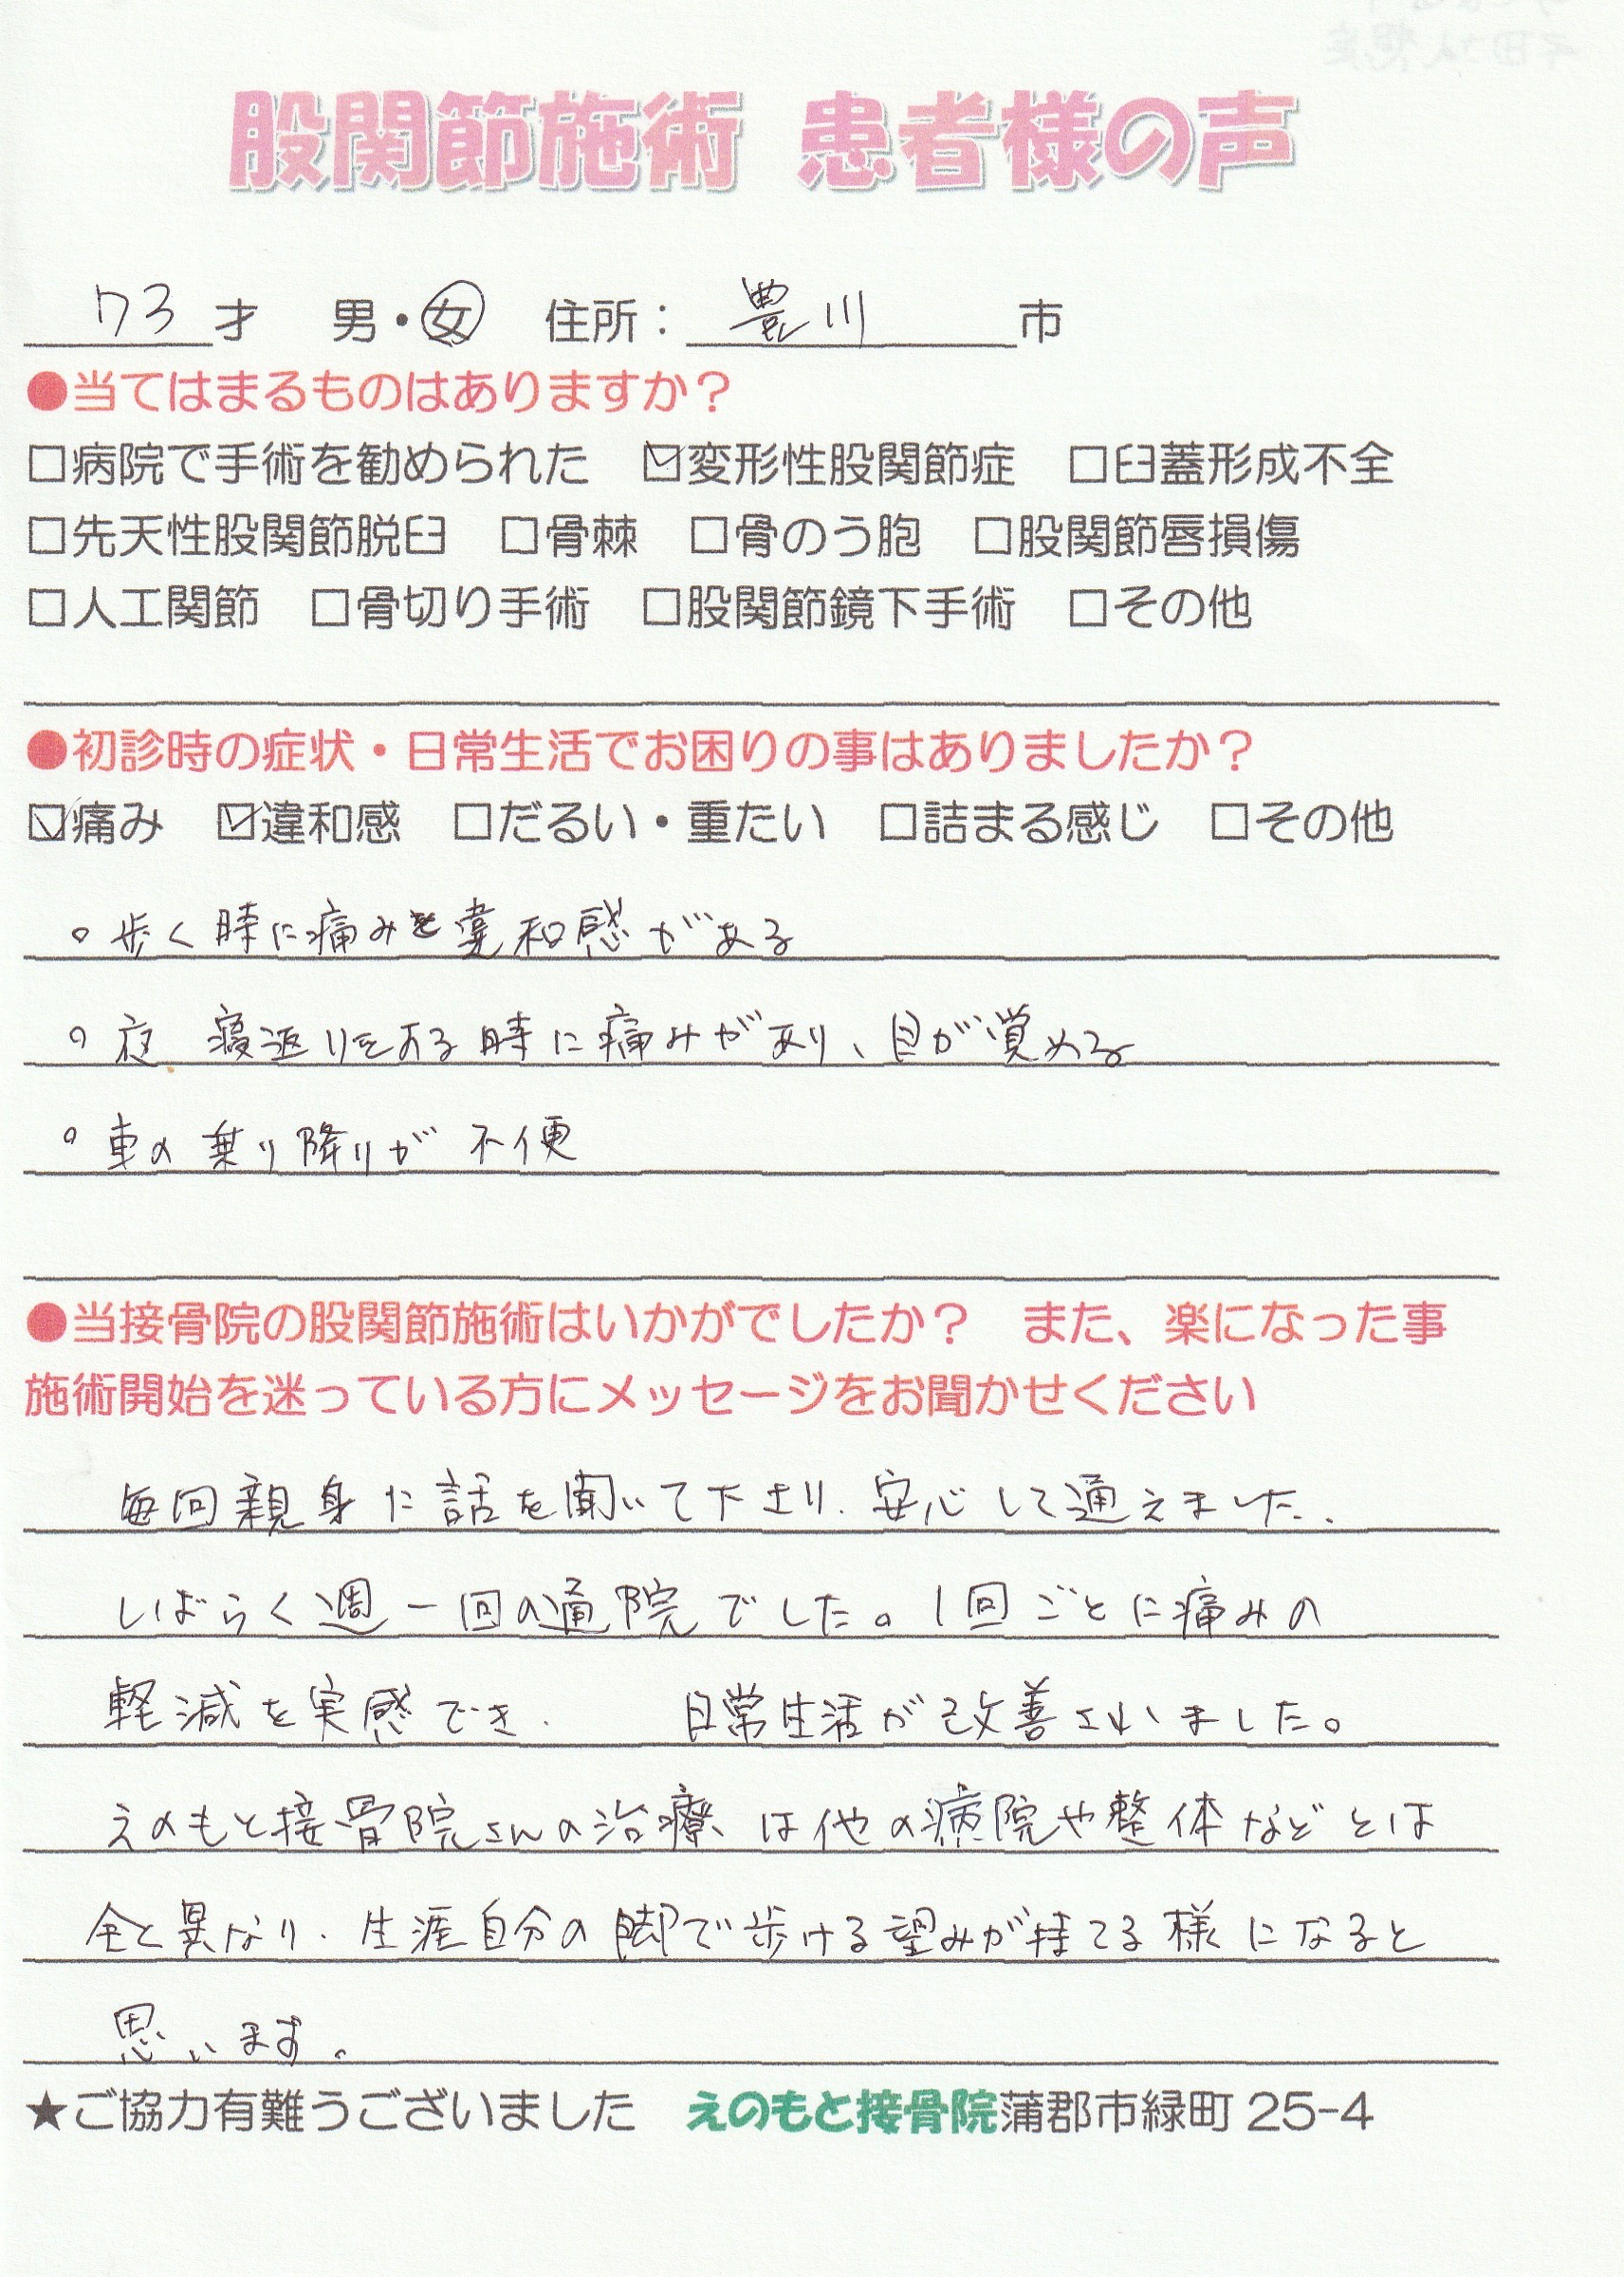 股関節施術 患者様の声
73才 男・女 住所：豊川市
●当てはまるものはありますか？
□病院で手術を勧められた ☑変形性股関節症 □臼蓋形成不全
□先天性股関節脱臼 □骨棘 □骨のう胞 □股関節唇損傷
□人工関節 □骨切り手術 □股関節鏡下手術 □その他
●初診時の症状・日常生活でお困りの事はありましたか？
☑痛み ☑違和感 □だるい・重たい □詰まる感じ □その他
○歩く時に痛みと違和感がある
○夜 寝返りをする時に痛みがあり、目が覚める
○車の乗り降りが不便
●当接骨院の股関節施術はいかがでしたか？ また、楽になった事
施術開始を迷っている方にメッセージをお聞かせください
毎回親身に話を聞いて下さり、安心して通えました。
しばらく週一回の通院でした。1回ごとに痛みの
軽減を実感でき、 日常生活が改善されいました。
えのもと接骨院さんの治療は他の病院や整体などとは
全と異なり、生涯自分の脚で歩ける望みが持てる様になると
思います。
★ご協力有難うございました えのもと接骨院蒲郡市緑町25-4